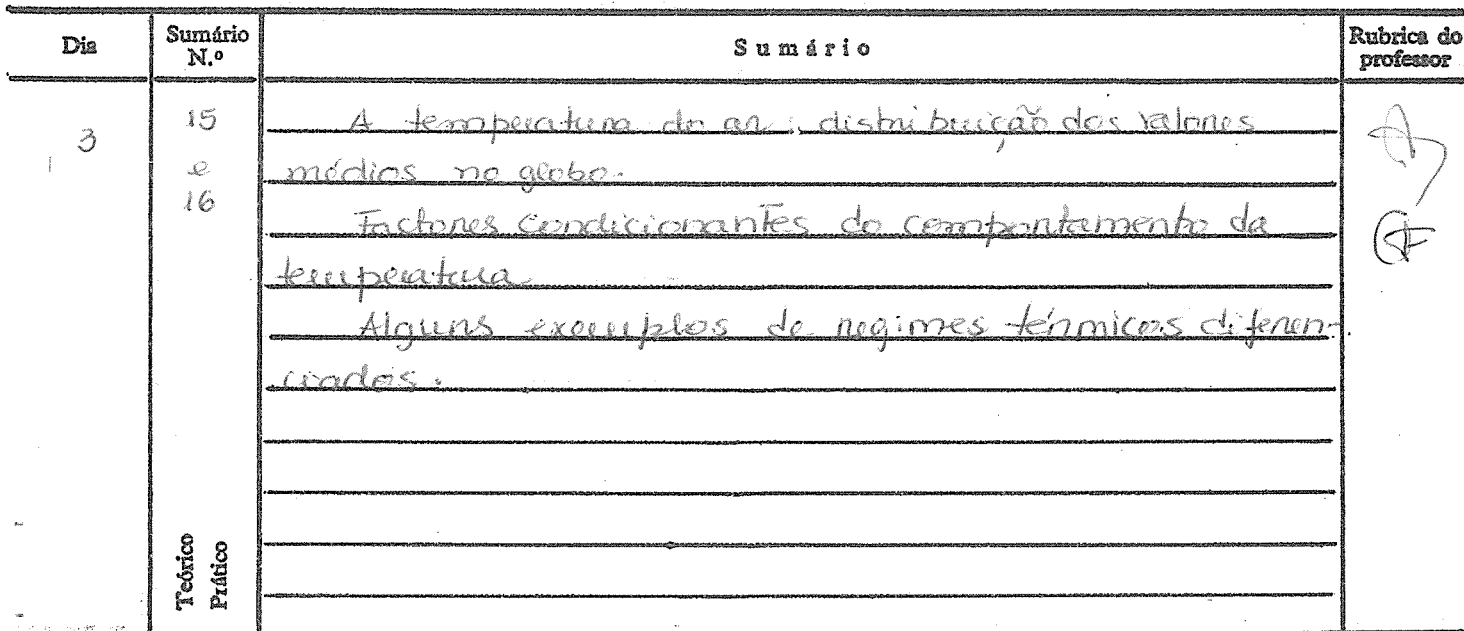 Dia Sumário N.º Sumário Rubrica do professor
3 15 e 16
A temperatura do ar: distribuição dos valores
médios no globo.
Factores condicionantes do comportamento da
temperatura
Alguns exemplos de regimes térmicos diferen-
ciados.
Teórico
Prático